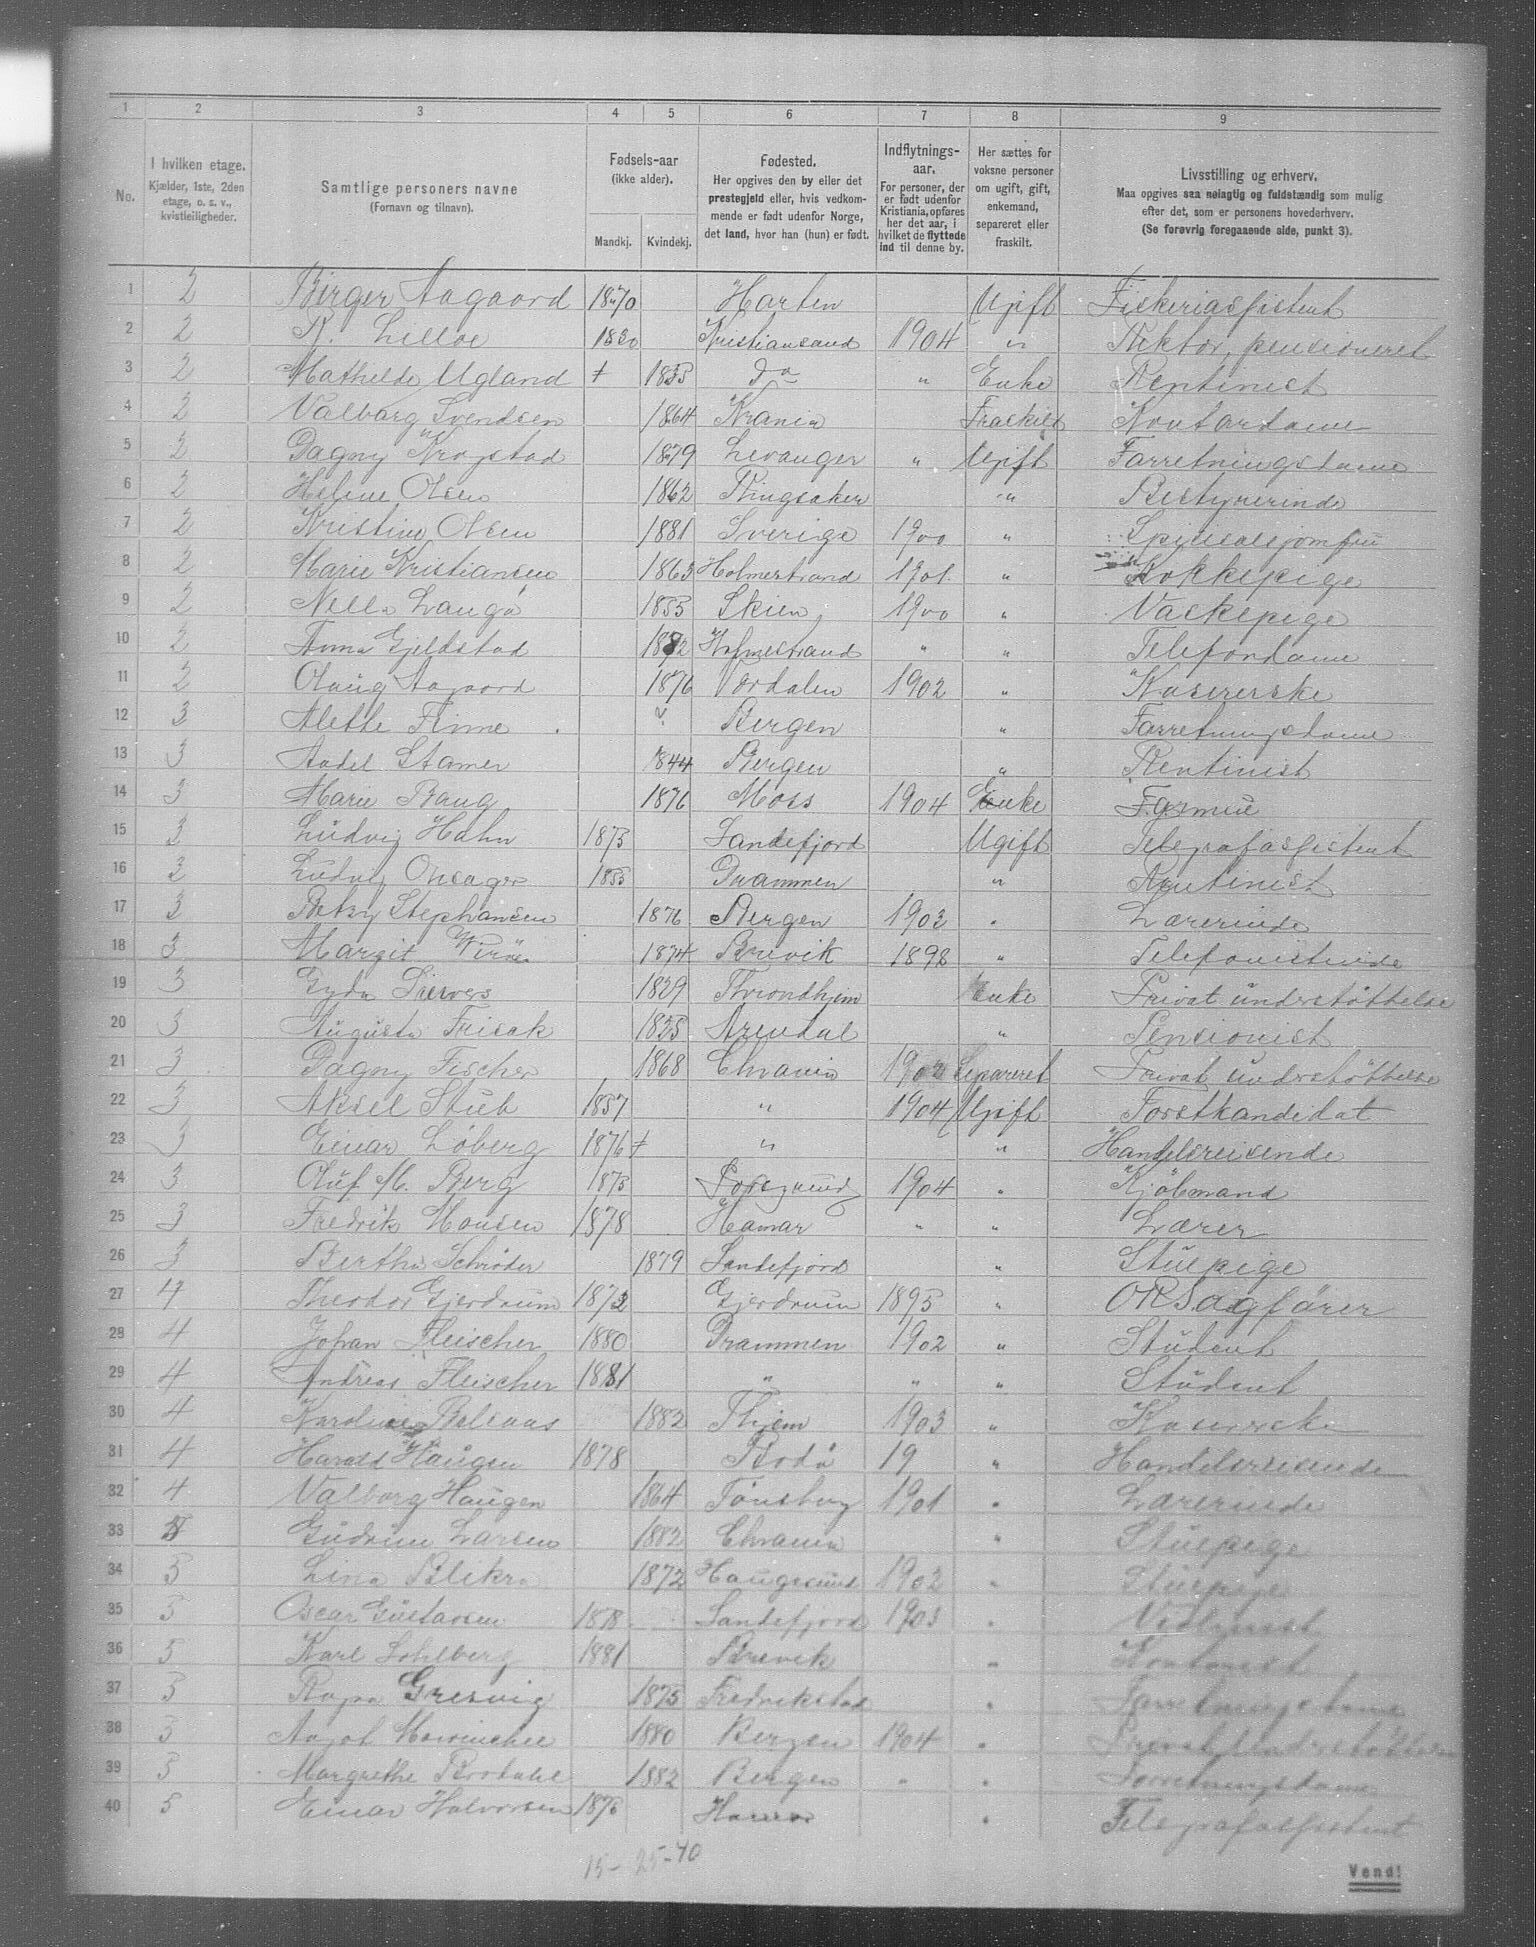 1 2 3 4 5 6 7 8 9
No.
I hvilken etage.
Kjælder, 1ste, 2den
etage, o. s. v.,
kvistleiligheder.
Samtlige personers navne
(Fornavn og tilnavn).
Fødsels-aar
(ikke alder).
Mandkj. Kvindekj.
Fødested.
Her opgives den by eller det
prestegjeld eller, hvis vedkom-
mende er født udenfor Norge,
det land, hvor han (hun) er født.
Indflytnings-
aar.
For personer, der
er født udenfor
Kristiania, opføres
her det aar, i
hvilket de flyttede
ind til denne by.
Her sættes for
voksne personer
om ugift, gift,
enkemand,
separeret eller
fraskilt.
Livsstilling og erhverv.
Maa opgives saa nøiagtig og fuldstændig som mulig
efter det, som er personens hovederhverv.
(Se forøvrig foregaaende side, punkt 3).
1 2 Birger Aagaard 1870 Horten Ugift Fiskeriassistent
2 2 R. Lilloe 1830 Kristiansand 1904 " Rektor, pensioneret
3 2 Mathilde Ugland + 1835 Do " Enke Rentinist
4 2 Valborg Svendsen 1864 Krania Fraskilt Kontordame
5 2 Dagny Krogstad 1879 Levanger " Ugift Forretningsdame
6 2 Helene Olsen 1862 Ringsaker " Bestyrerinde
7 2 Kristine Olsen 1881 Sverige 1900 " Spisesalsjomfru
8 2 Marie Kristiansen 1863 Holmestrand 1901. " Kokkepige
9 2 Nella Langå 1855 Skien 1900 " Vaskepige
10 2 Anna Gjeldstad 1882 Holmestrand " " Telefondame
11 2 Olaug Aagaard 1876 Værdalen 1902 " Kasererske
12 3 Alette Finne ? Bergen " Forretningsdame
13 3 Aadel Stamer 1844 Bergen " Rentinist
14 3 Marie Baug 1876 Moss 1904 Enke
15 3 Ludvig Hahn 1875 Sandefjord Ugift Telegrafassistent
16 3 Ludvig Onsager 1855 Drammen " Rentinist
17 3 Betzy Stephansen 1876 Bergen 1903 " Lærerinde
18 3 Margit Wirøe 1874 Brevik 1898 " Telefonistinde
19 3 Gyda Sievers 1829 Throndhjem Enke Privat understøttelse
20 3 Augusta Frisak 1835 Arendal " Pensionist
21 3 Dagny Fischer 1868 Chrania 1902 Separeret Privat understøttelse
22 3 Aksel Stub 1857 " 1904 Ugift Forstkandidat
23 3 Einar Løberg 1876 + " " Handelsreisende
24 3 Oluf M. Berg 1875 Porsgrund 1904 " Kjøbmand
25 3 Fredrik Monsen 1878 Hamar " " Lærer
26 3 Bertha Schrøder 1879 Sandefjord " Stuepige
27 4 Theodor Gjerdrum 1872 Gjerdrum 1895 " ORSagfører
28 4 Johan Fleischer 1880 Drammen 1902 " Student
29 4 Andreas Fleischer 1881 " " " Student
30 4 Karoline Belsaas 1882 Thjem 1903 " Kasererske
31 4 Harald Haugen 1878 Bodø 19 " Handelsreisende
32 4 Valborg Haugen 1864 Tønsberg 1901 " Lærerinde
33 5 Gudrun Larsen 1882 Chrania " Stuepige
34 5 Lina Blikra 1872 Haugesund 1902 " Stuepige
35 5 Oscar Gustavsen 1878 Sandefjord 1903 "
36 5 Karl Sohlberg 1881 Brevik " Kontorist
37 5 Ragna Gresvig 1875 Fredrikstad " Forretningsdame
38 5 Aagot 1880 Bergen 1904 " Privat Understøttelse
39 5 Margrethe 1882 Bergen " " Forretningsdame
40 5 Einar Halvorsen 1875 " Telegrafassistent
15 - 25 - 40
Vend!